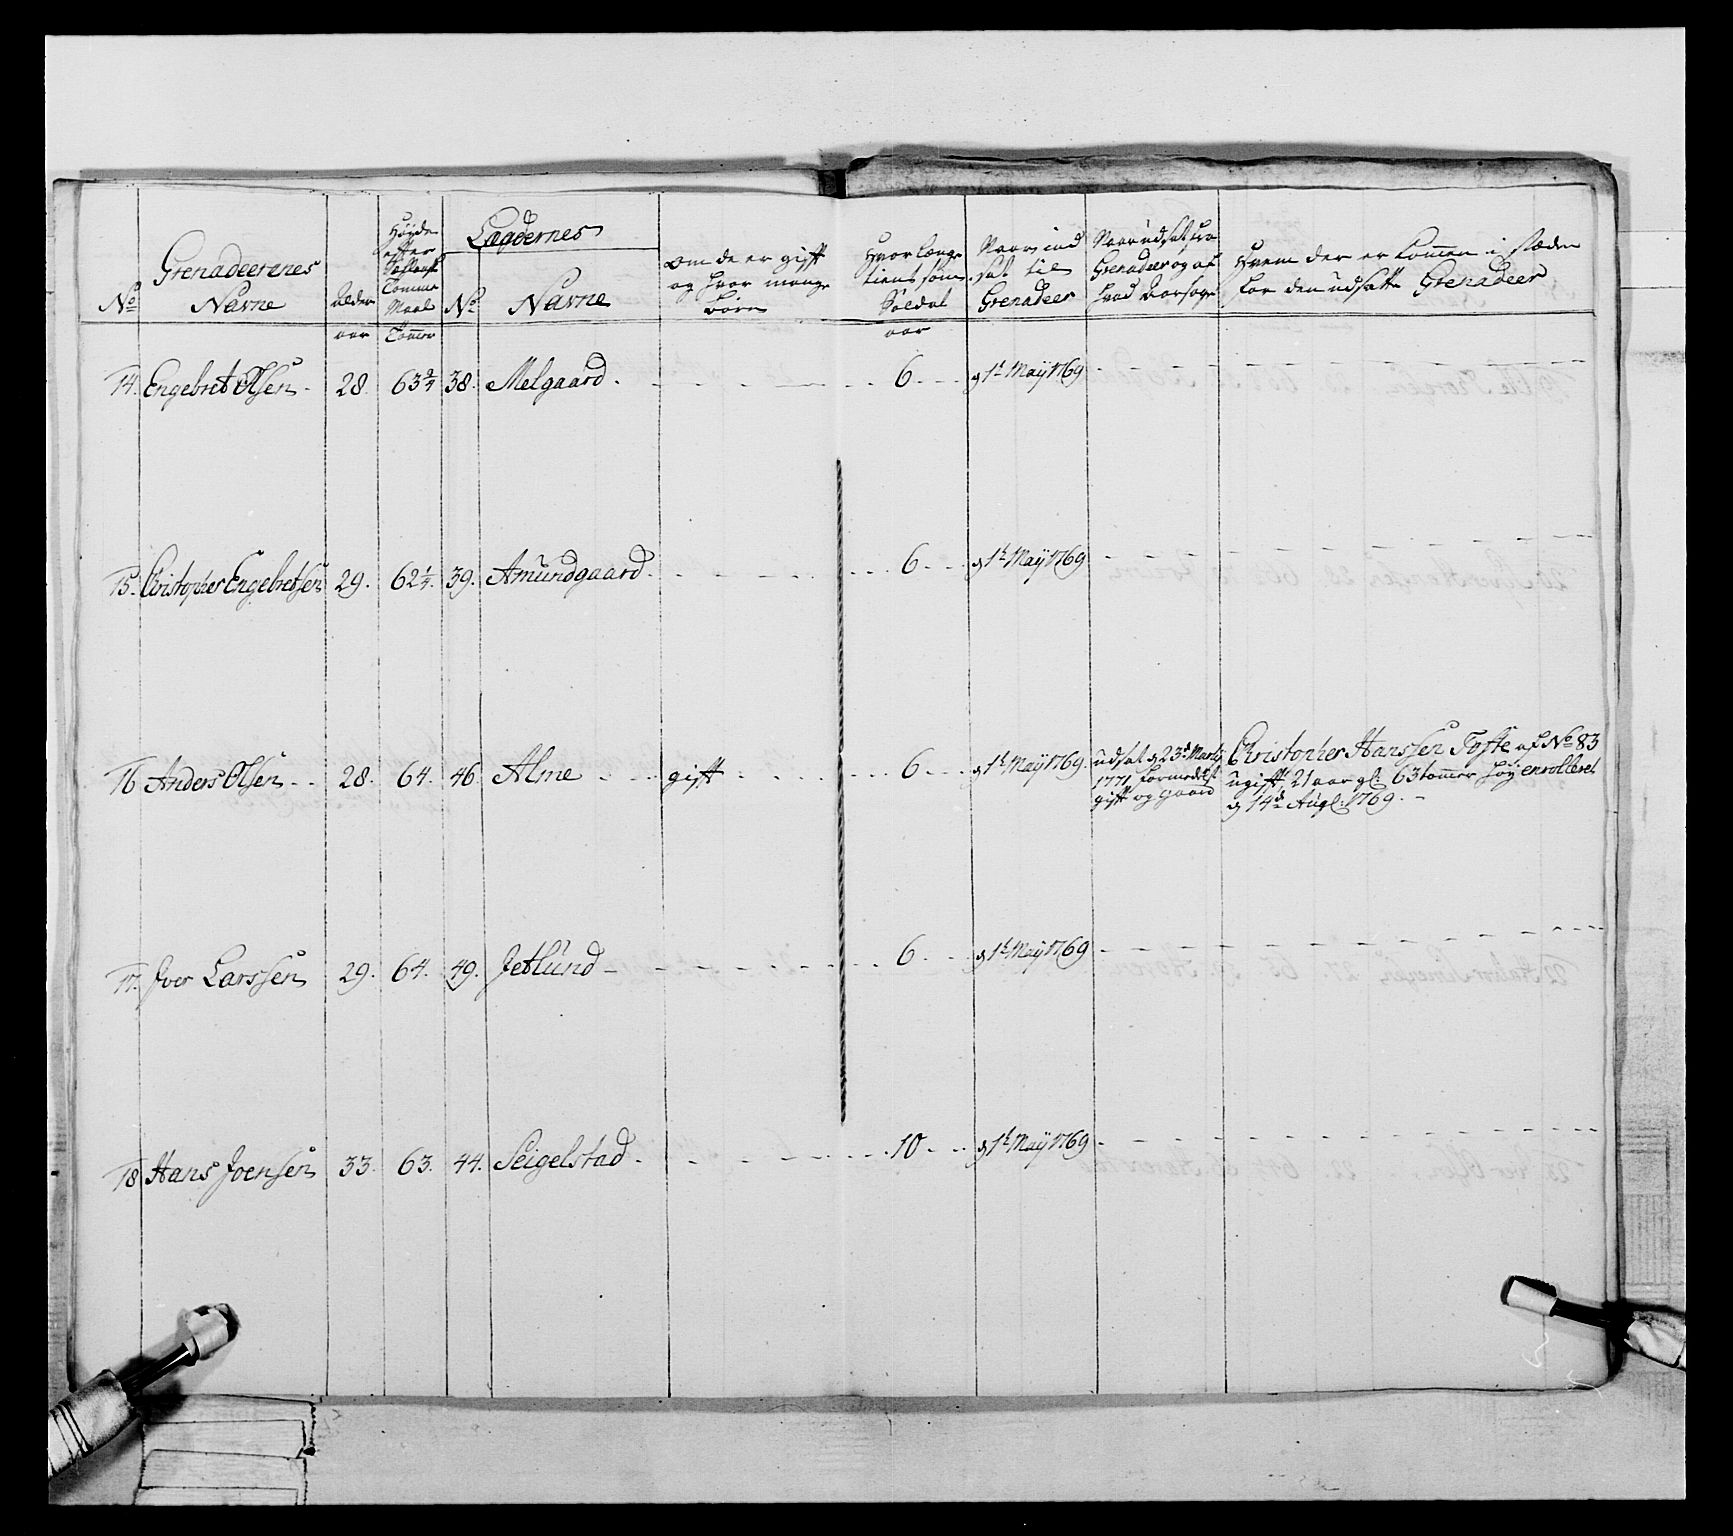 Grenadeerenes
No Navne
Alder
aar
Høyde
efter
Tomme
Maal
Tommer
Lægdernes
No Navne
om de er gift
og hvor mange
børn
Hvor længe
tient som
Soldat
aar
Naar ind
sat til
Grenadeer
Naar udsat fra
Grenadeer og af
hvad Aarsage
Hvem der er kommen i stæden
for den udsatte Grenadeer
14. Engebret Olsen 28. 63 2/4 38. Melgaard. 6 d 1t May 1769
15. Christopher Engebretsen 29. 62 1/4 39. Amundgaard. 6 d 1t May 1769
16 Anders Olsen 28. 64. 46. Alme gift 6 d 1t May 1769. udsat d 23d Martij
1771 formedelst
gift og gaard
Christopher Hanssen Tofte af No 83
ugift, 21 aar gl. 63 tommer høy enrolleret
d 14d Augl. 1769.
17. Jver Larssen 29. 64. 49. Jetlund 6 d 1t May 1769
18 Hans Joensen 33. 63. 44. Seigelstad. 10 d 1t May 1769